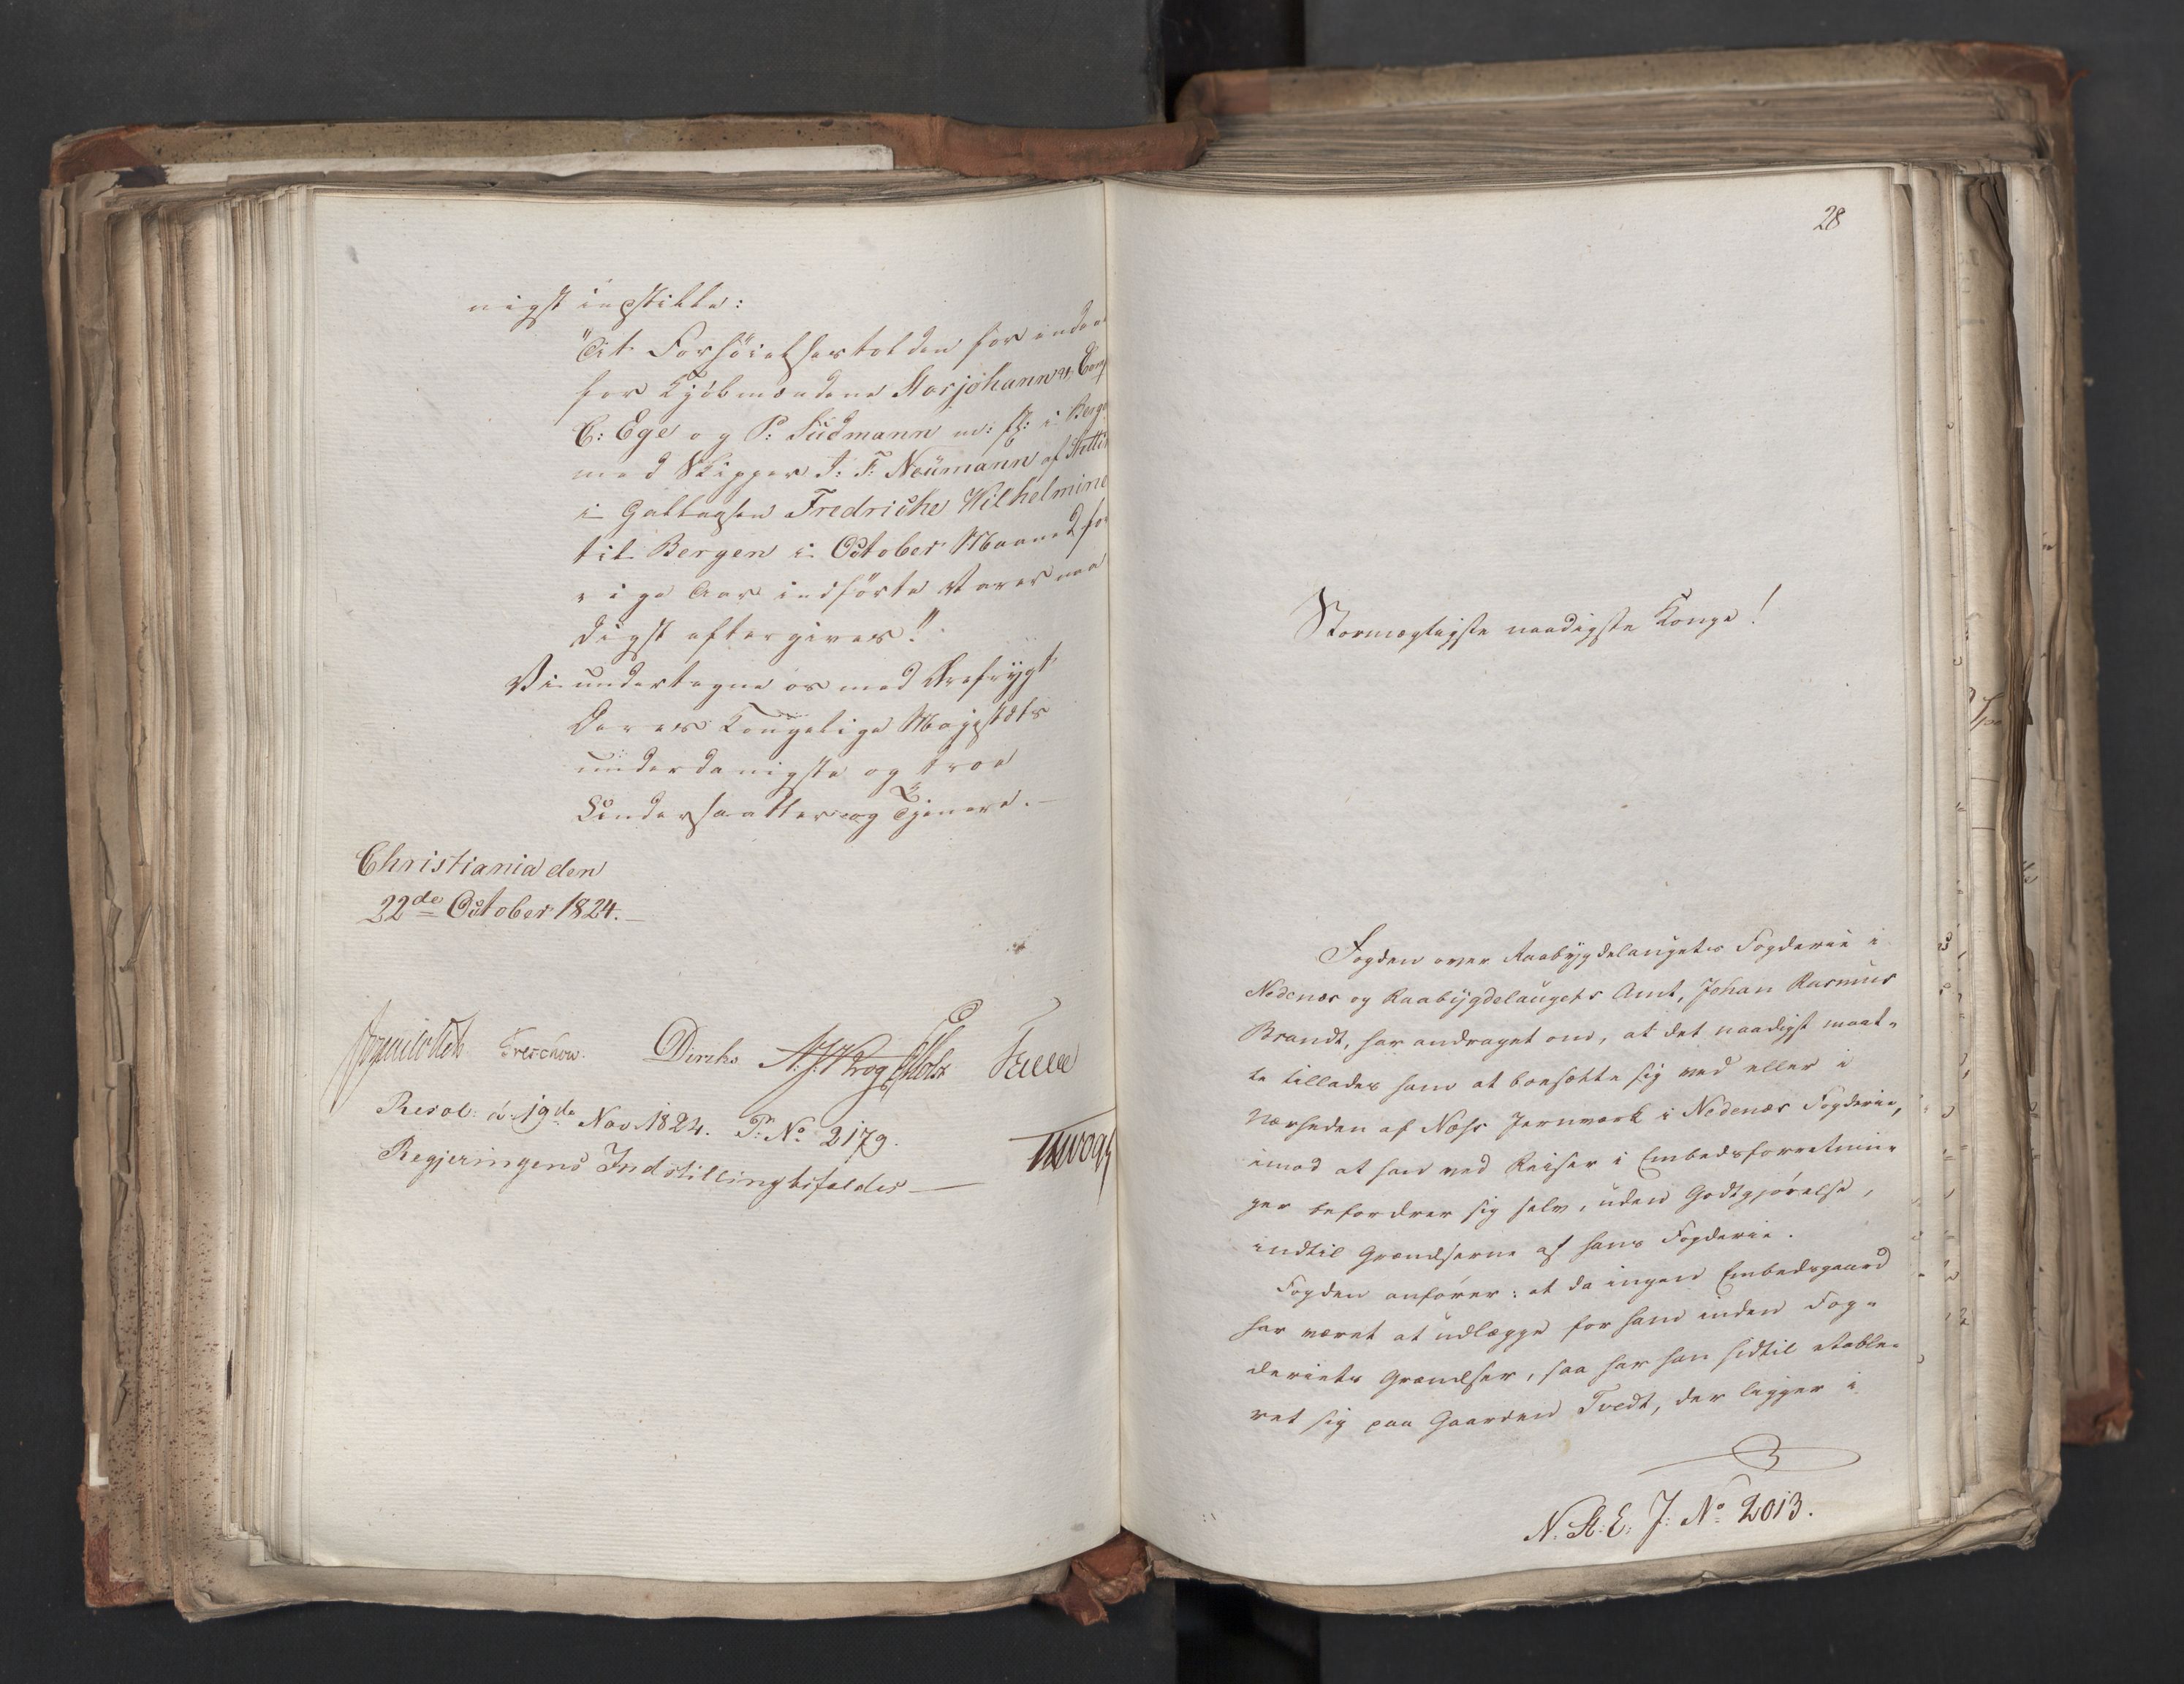 nigst indstille:
"At Forhøielsestolden for inden
for Kjöbmændene Storjohann 
C: Ege og P: Südmann m: fl: i Berge
med Skipper J: F: Neümann af Stettin
i Galleasen Fredriche Wilhelmine
til Bergen i October Maaned for
rige Aar indførte Varer naa
digst eftergives."
Vi undertegne os med Ærefrygt
Deres Kongelige Majestæts
underdanigste og troe
Undersaatter og Tjenere.—
Christiania den
22de October 1824.—
Treschow. Diriks Krog Holst
Resol: d: 19de Nov 1824. P: No 2179.
Regjeringens Indstilling bifaldes—
28
Stormægtigste naadigste Konge!
Fogden over Raabygdelaugets Fogderie i
Nedenæs og Raabygdelaugets Amt, Johan Rasmus
Brandt, har andraget om, at det naadigst maat-
te tillades ham at bosætte sig ved eller i
Nærheden af Næss Jernværk i Nedenæs Fogderie,
imod at han ved Reiser i Embedsforretnin-
ger befordrer sig selv, uden Godtgjørelse,
indtil Grændserne af hans Fogderie.
Fogden anfører: at da ingen Embedsgaard
har været at udlægge for ham inden Fog-
deriets Grændser, saa har han hidtil etable-
ret sig paa Gaarden Tvedt, der ligger i
N. St: E: J: No 2013.